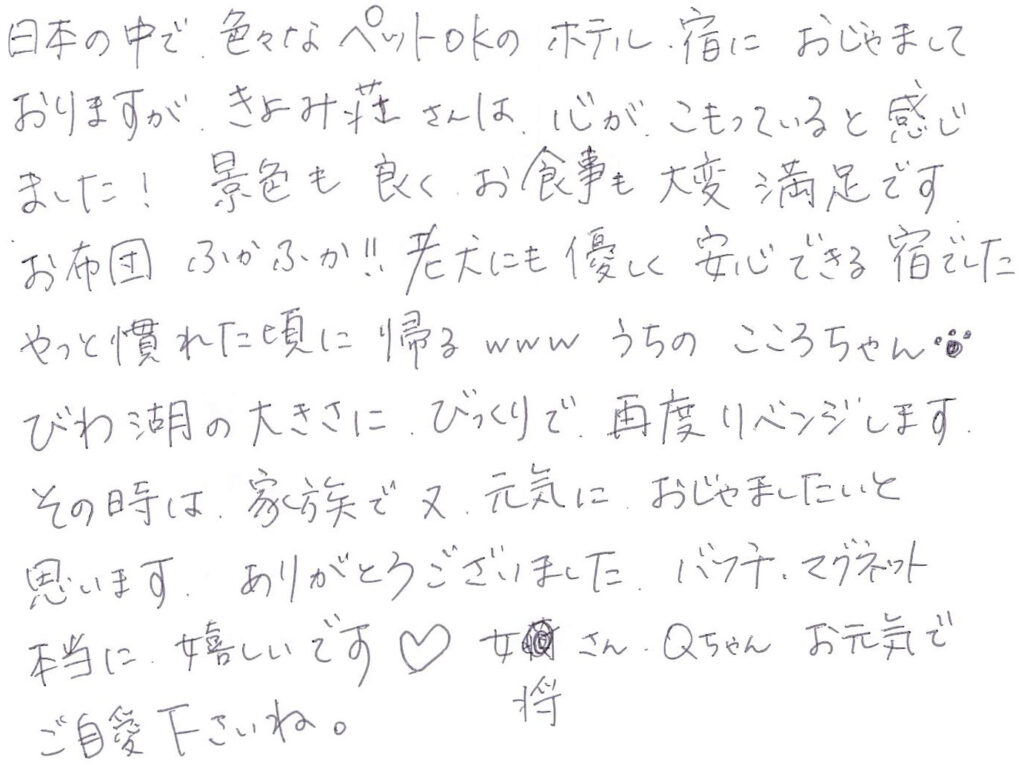 日本の中で、色々なペットOKの ホテル、宿に おじゃまして
おりますが、きよみ荘さんは、心が、こもっていると感じ
ました! 景色も 良く、お食事も 大変 満足です
お布団 ふかふか!! 老犬にも優しく 安心できる宿でした
やっと慣れた頃に 帰るwww うちの こころちゃん🐾
びわ湖の大きさに、びっくりで、再度リベンジします、
その時は、家族で又、元気に おじゃましたいと
思います、ありがとうございました、バッチ、マグネット
本当に、嬉しいです♡ 女将さん、Qちゃん お元気で
ご自愛下さいね。